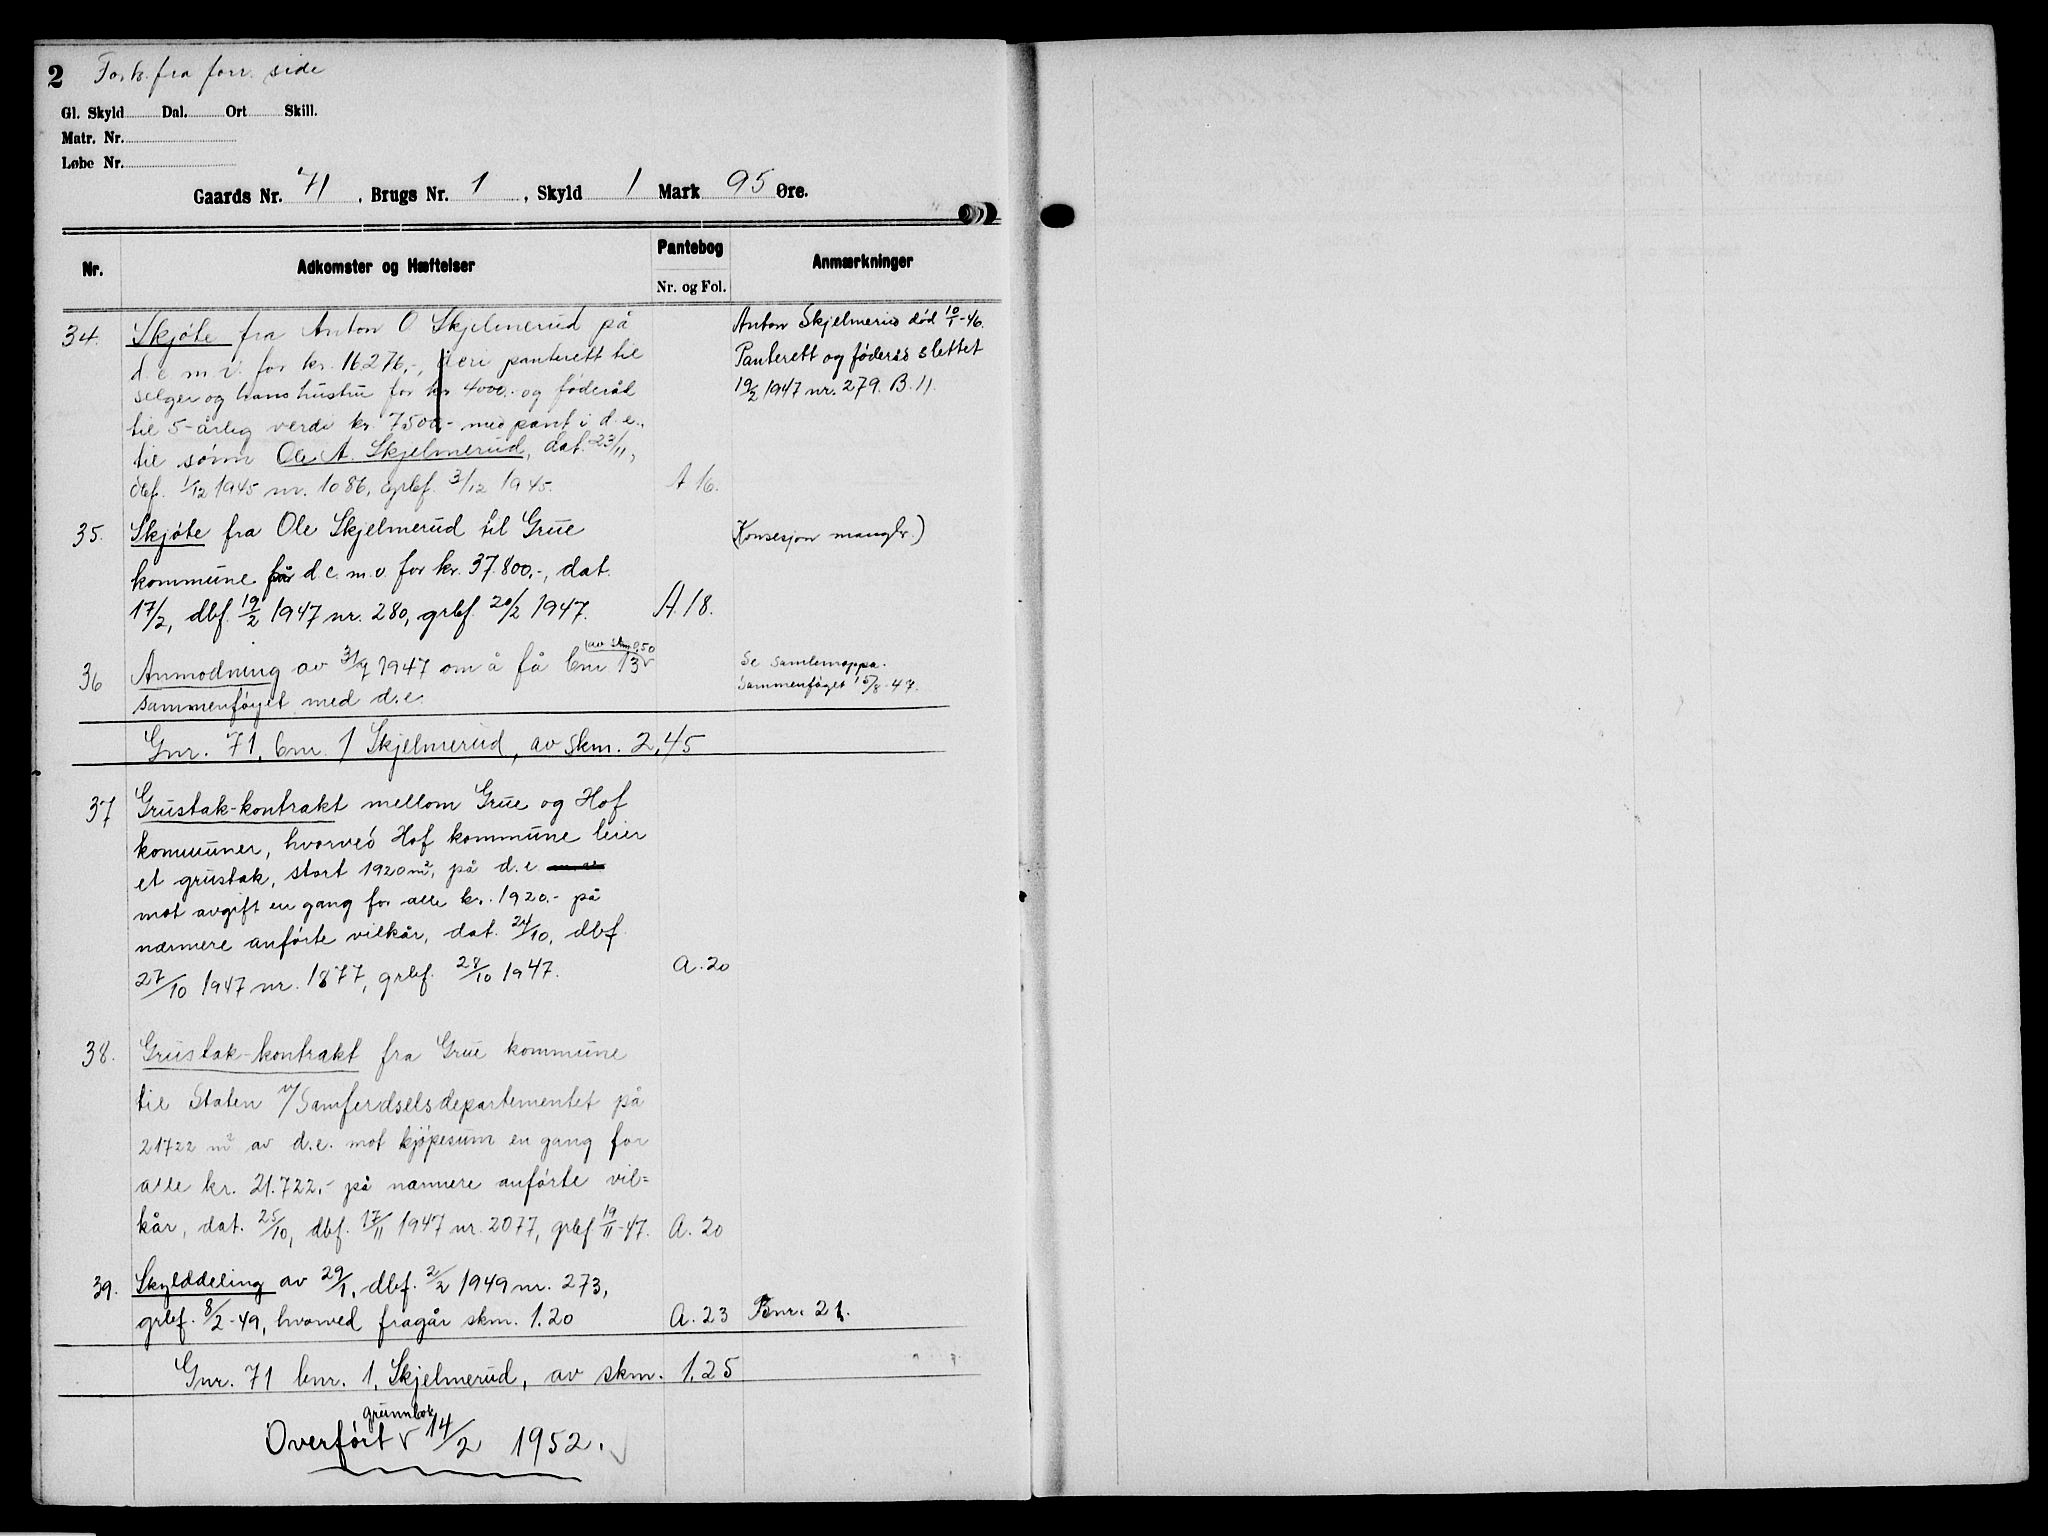 2 Forts. fra forr. side
Gl. Skyld Dal. Ort Skill.
Matr. Nr.
Løbe Nr.
Gaards Nr. 71, Brugs Nr. 1, Skyld 1 Mark 95 Øre.
Nr. Adkomster og Hæftelser Pantebog Nr. og Fol. Anmærkninger
34. Skjøte fra Anton O Skjelmerud på
d. e. m. v. for kr. 16276,-, deri panterett til
selger og hans hustru for kr 4000.- og føderåd
til 5-årlig verdi kr. 7500,- med pant i d.e.,
til sønn Ole A. Skjelmerud, dat. 23/11,
dbf. 1/12 1945 nr. 1086, grbf. 3/12 1945. A 16.
Anton Skjelmerud død 10/1-46.
Panterett og føderåd slettet
19/2 1947 nr. 279. B. 11.
35. Skjøte fra Ole Skjelmerud til Grue
kommune på d.e. m.v. for kr. 37.800,-, dat.
17/2, dbf. 19/2 1947 nr. 280, grbf. 20/2 1947. A. 18.
(Konsesjon mangler.)
36 Anmodning av 31/7 1947 om å få bnr 13 (av skm 0,50
sammenføyet med d.e.
Se samlemappa.
Sammenføyet 15/8-47.
Gnr. 71, bnr. 1 Skjelmerud, av skm. 2,45
37 Grustak-kontrakt mellom Grue og Hof
kommuner, hvorved Hof kommune leier
et grustak, stort 1920 m², på d.e
mot avgift en gang for alle kr. 1920.- på
nærmere anførte vilkår, dat. 24/10, dbf.
27/10 1947 nr. 1877, grbf. 28/10 1947. A. 20
38. Grustak-kontrakt fra Grue kommune
til Staten v/Samferdselsdepartementet på
21722 m² av d.e. mot kjøpesum en gang for
alle kr. 21.722,- på nærmere anførte vil=
kår, dat. 25/10, dbf. 17/11 1947 nr. 2077, grbf 19/11-47. A. 20
39. Skylddeling av 29/1, dbf. 2/2 1949 nr. 273,
grbf. 8/2-49, hvorved fragår skm. 1.20 A. 23 Bnr. 21.
Gnr. 71 bnr. 1, Skjelmerud, av skm. 1.25
Overført grunnbok 14/2 1952.